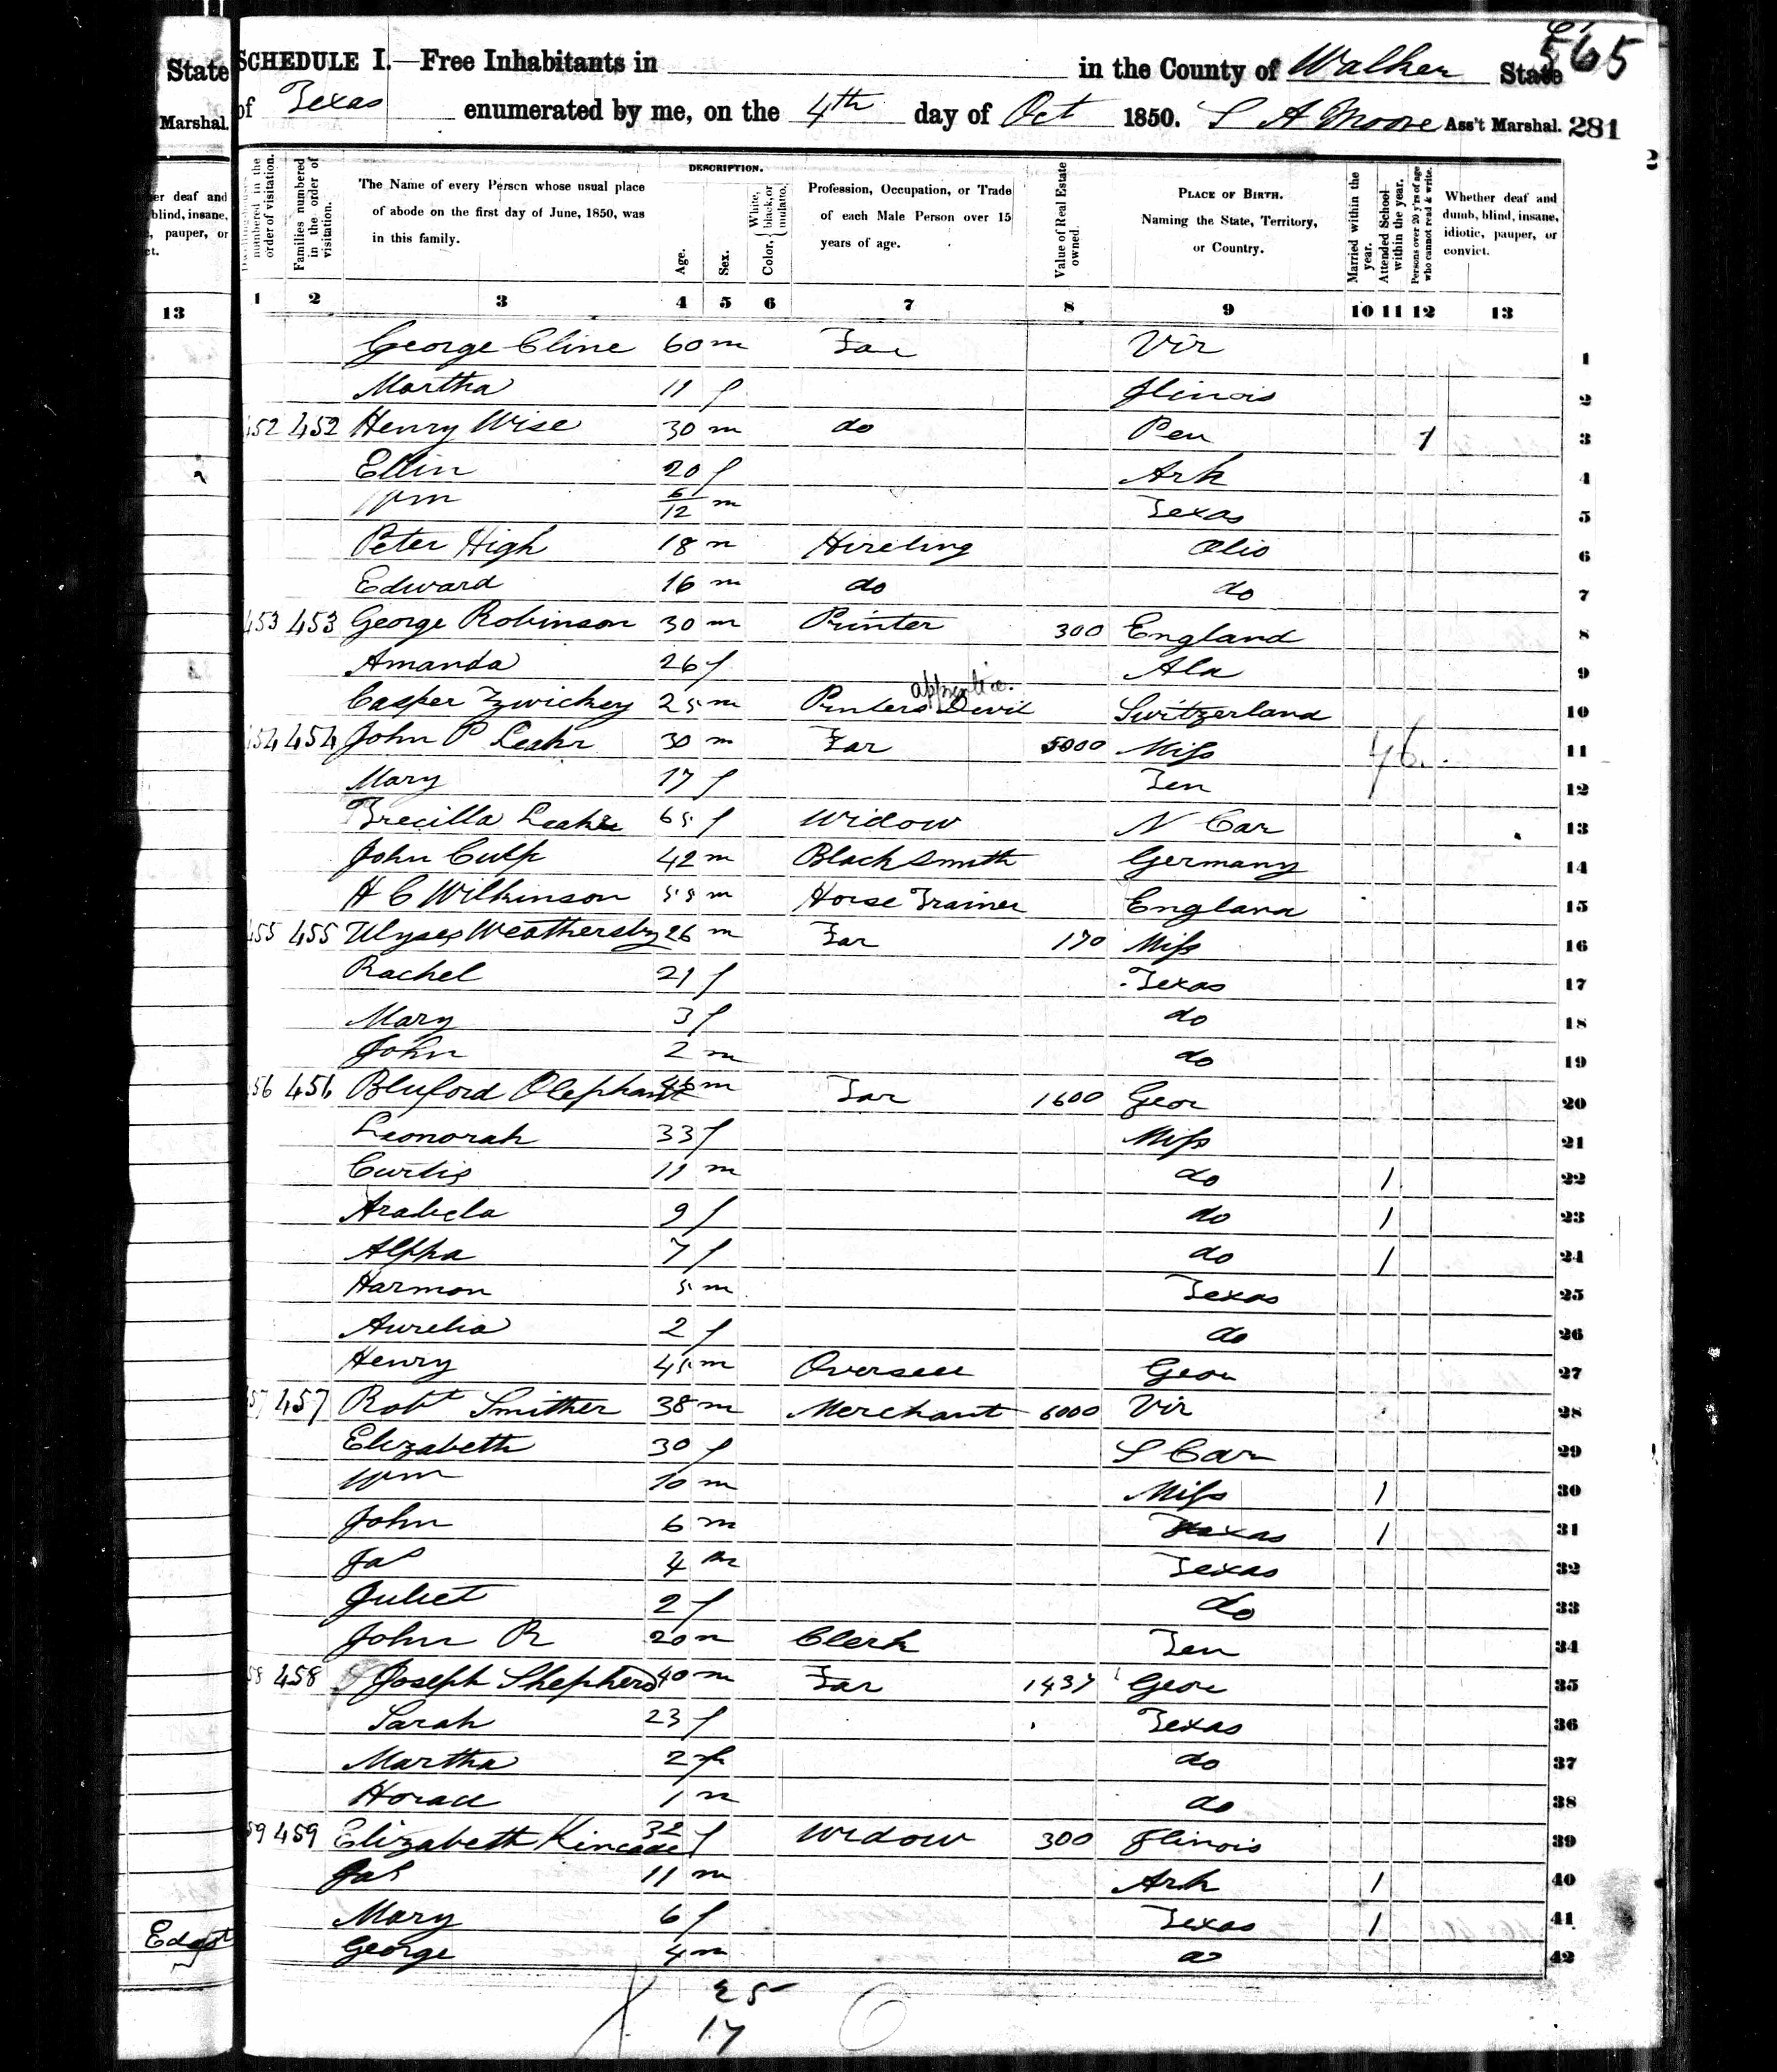 565
SCHEDULE I.—Free Inhabitants in in the County of Walker State
of Texas enumerated by me, on the 4th day of Oct 1850. S A Moore Ass't Marshal. 281
State
Marshal.
er deaf and
blind, insane,
, pauper, or
ct.
13
numbered in the order of visitation.
Families numbered in the order of visitation.
The Name of every Person whose usual place of abode on the first day of June, 1850, was in this family.
DESCRIPTION.
Age.
Sex.
Color, White, black, or mulatto.
Profession, Occupation, or Trade of each Male Person over 15 years of age.
Value of Real Estate owned.
PLACE OF BIRTH. Naming the State, Territory, or Country.
Married within the year.
Attended School within the year.
Persons over 20 y'rs of age who cannot read & write.
Whether deaf and dumb, blind, insane, idiotic, pauper, or convict.
1 2 3 4 5 6 7 8 9 10 11 12 13
George Cline 60 m Far Vir 1
Martha 11 f Ilinois 2
452 452 Henry Wise 30 m do Pen 1 3
Ellin 20 f Ark 4
Wm 6/12 m Texas 5
Peter High 18 m Hireling Ohio 6
Edward 16 m do do 7
453 453 George Robinson 30 m Printer 300 England 8
Amanda 26 f Ala 9
Casper Zwickey 25 m Printers Devil apprentice. Switzerland 10
454 454 John P Leahr 30 m Far 5000 Miss 11
Mary 17 f Ten 12
Precilla 65 f Widow N Car 13
John Culp 42 m Blacksmith Germany 14
H C Wilkinson 55 m Horse Trainer England 15
455 455 Ulyses Weathersby 26 m Far 170 Miss 16
Rachel 21 f Texas 17
Mary 3 f do 18
John 2 m do 19
456 456 Bluford Olephant m Far 1600 Geor 20
Leonorah 33 f Miss 21
Curtis 11 m do 1 22
Arabela 9 f do 1 23
Alpha 7 f do 1 24
Harmon 5 m Texas 25
Aurelia 2 f do 26
Henry 45 m Overseer Geor 27
457 457 Robt Smither 38 m Merchant 6000 Vir 28
Elizabeth 30 f S Car 29
Wm 10 m Miss 1 30
John 6 m Texas 1 31
Jas 4 m Texas 32
Juliet 2 f do 33
John R 20 m Clerk Ten 34
58 458 Joseph Shepherd 40 m Far 1437 Geor 35
Sarah 23 f Texas 36
Martha 2 f do 37
Horace 1 m do 38
59 459 Elizabeth Kincade 32 f Widow 300 Ilinois 39
Jas 11 m Ark 1 40
Mary 6 f Texas 1 41
George 4 m do 42
25
17